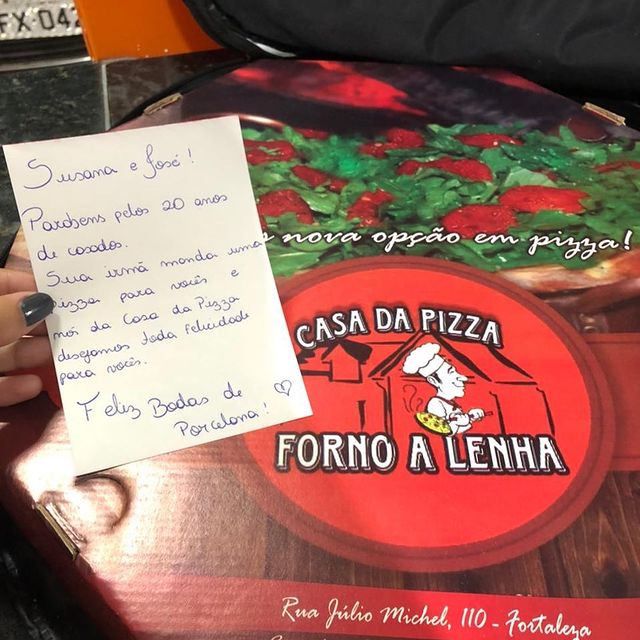 FX 042
Susana e José!
Parabéns pelos 20 anos
de casados.
Sua irmã manda uma
pizza para vocês e
nós da Casa da Pizza
desejamos toda felicidade
para vocês.
Feliz Bodas de
Porcelana! ♡
nova opção em pizza!
CASA DA PIZZA
FORNO A LENHA
Rua Júlio Michel, 110 - Fortaleza